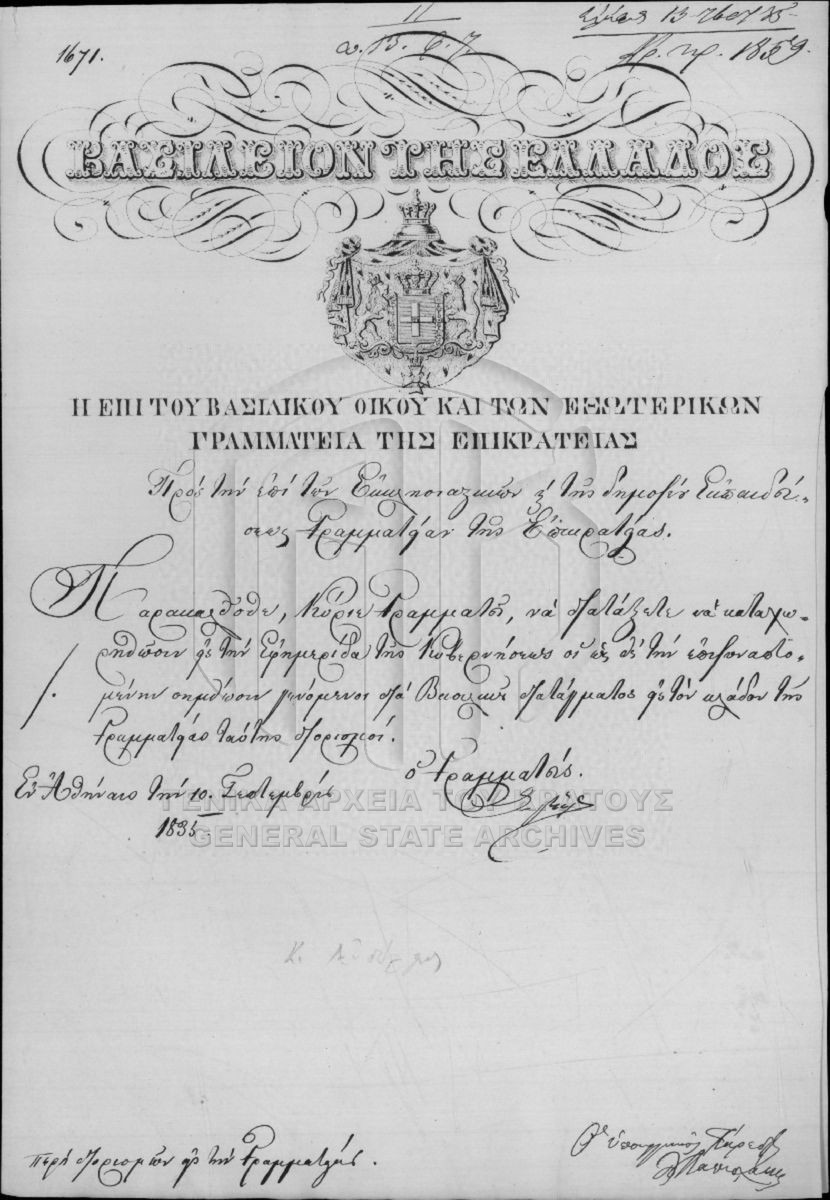 1671.
11
ΒΑΣΙΛΕΙΟΝ ΤΗΣ ΕΛΛΑΔΟΣ
Η ΕΠΙ ΤΟΥ ΒΑΣΙΛΙΚΟΥ ΟΙΚΟΥ ΚΑΙ ΤΩΝ ΕΞΩΤΕΡΙΚΩΝ
ΓΡΑΜΜΑΤΕΙΑ ΤΗΣ ΕΠΙΚΡΑΤΕΙΑΣ
Πρὸς τὴν ἐπὶ τῶν Ἐκκλησιαστικῶν καὶ τῆς δημοσίου Ἐκπαιδεύ-
σεως Γραμματείαν τῆς Ἐπικρατείας.
Παρακαλεῖσθε, Κύριε Γραμματεῦ, νὰ διατάξετε νὰ καταχω-
ρηθῶσιν εἰς τὴν Ἐφημερίδα τῆς Κυβερνήσεως οἱ εἰς τὴν ἐπισυναπτο-
μένην σημείωσιν γενόμενοι διὰ Βασιλικοῦ διατάγματος εἰς τὸν κλάδον τῆς
Γραμματείας ταύτης διορισμοί.
Ἐν Ἀθήναις τὴν 10. Σεπτεμβρίου
1835
ὁ Γραμματεύς.
ΓΕΝΙΚΑ ΑΡΧΕΙΑ ΤΟΥ ΚΡΑΤΟΥΣ
GENERAL STATE ARCHIVES
περὶ διορισμῶν εἰς τὴν Γραμματείας.
Ὁ ὑπουργικὸς Πάρεδρος